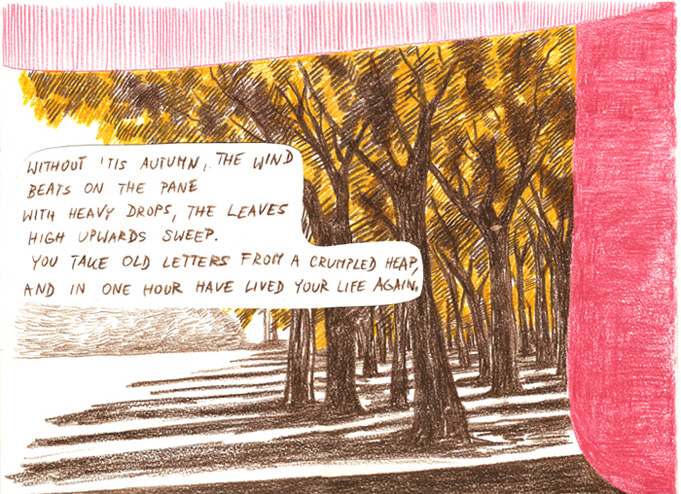 WITHOUT 'TIS AUTUMN, THE WIND
BEATS ON THE PANE
WITH HEAVY DROPS, THE LEAVES
HIGH UPWARDS SWEEP.
YOU TAKE OLD LETTERS FROM A CRUMPLED HEAP,
AND IN ONE HOUR HAVE LIVED YOUR LIFE AGAIN.